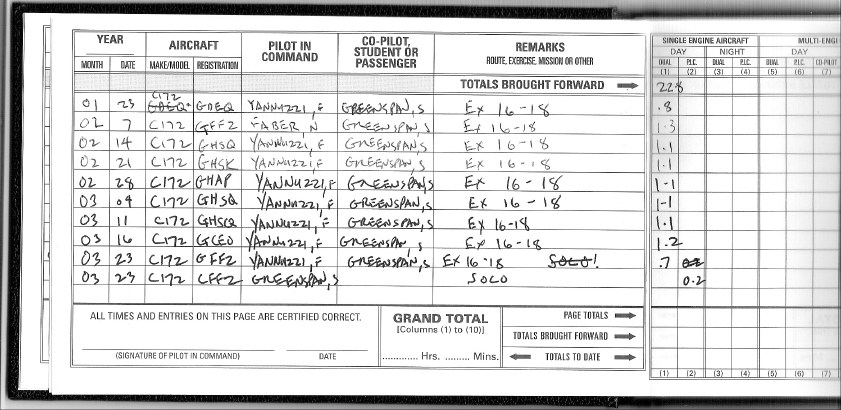 YEAR AIRCRAFT PILOT IN COMMAND CO-PILOT, STUDENT OR PASSENGER REMARKS SINGLE ENGINE AIRCRAFT MULTI-ENGI
ROUTE, EXERCISE, MISSION OR OTHER DAY NIGHT DAY
MONTH DATE MAKE/MODEL REGISTRATION DUAL P.I.C. DUAL P.I.C. DUAL P.I.C. CO-PILOT
(1) (2) (3) (4) (5) (6) (7)
TOTALS BROUGHT FORWARD 22.8
01 23 C172 GOEQ YANNUZZI, F GREENSPAN, S Ex 16-18 .8
02 7 C172 GFFZ FABER, N GREENSPAN, S Ex 16-18 1.3
02 14 C172 GHSQ YANNUZZI, F GREENSPAN, S Ex 16-18 1.1
02 21 C172 GHSK YANNUZZI, F GREENSPAN, S Ex 16-18 1.1
02 28 C172 GHAP YANNUZZI, F GREENSPAN, S Ex 16-18 1.1
03 04 C172 GHSQ YANNUZZI, F GREENSPAN, S Ex 16-18 1.1
03 11 C172 GHSQ YANNUZZI, F GREENSPAN, S Ex 16-18 1.1
03 16 C172 GCEO YANNUZZI, F GREENSPAN, S Ex 16-18 1.2
03 23 C172 GFFZ YANNUZZI, F GREENSPAN, S Ex 16-18 SOLO! .7 0.2
03 23 C172 CFFZ GREENSPAN, S SOLO 0.2
ALL TIMES AND ENTRIES ON THIS PAGE ARE CERTIFIED CORRECT. GRAND TOTAL PAGE TOTALS
[Columns (1) to (10)]
TOTALS BROUGHT FORWARD
............. Hrs. ......... Mins. TOTALS TO DATE
(SIGNATURE OF PILOT IN COMMAND) DATE
(1) (2) (3) (4) (5) (6) (7)